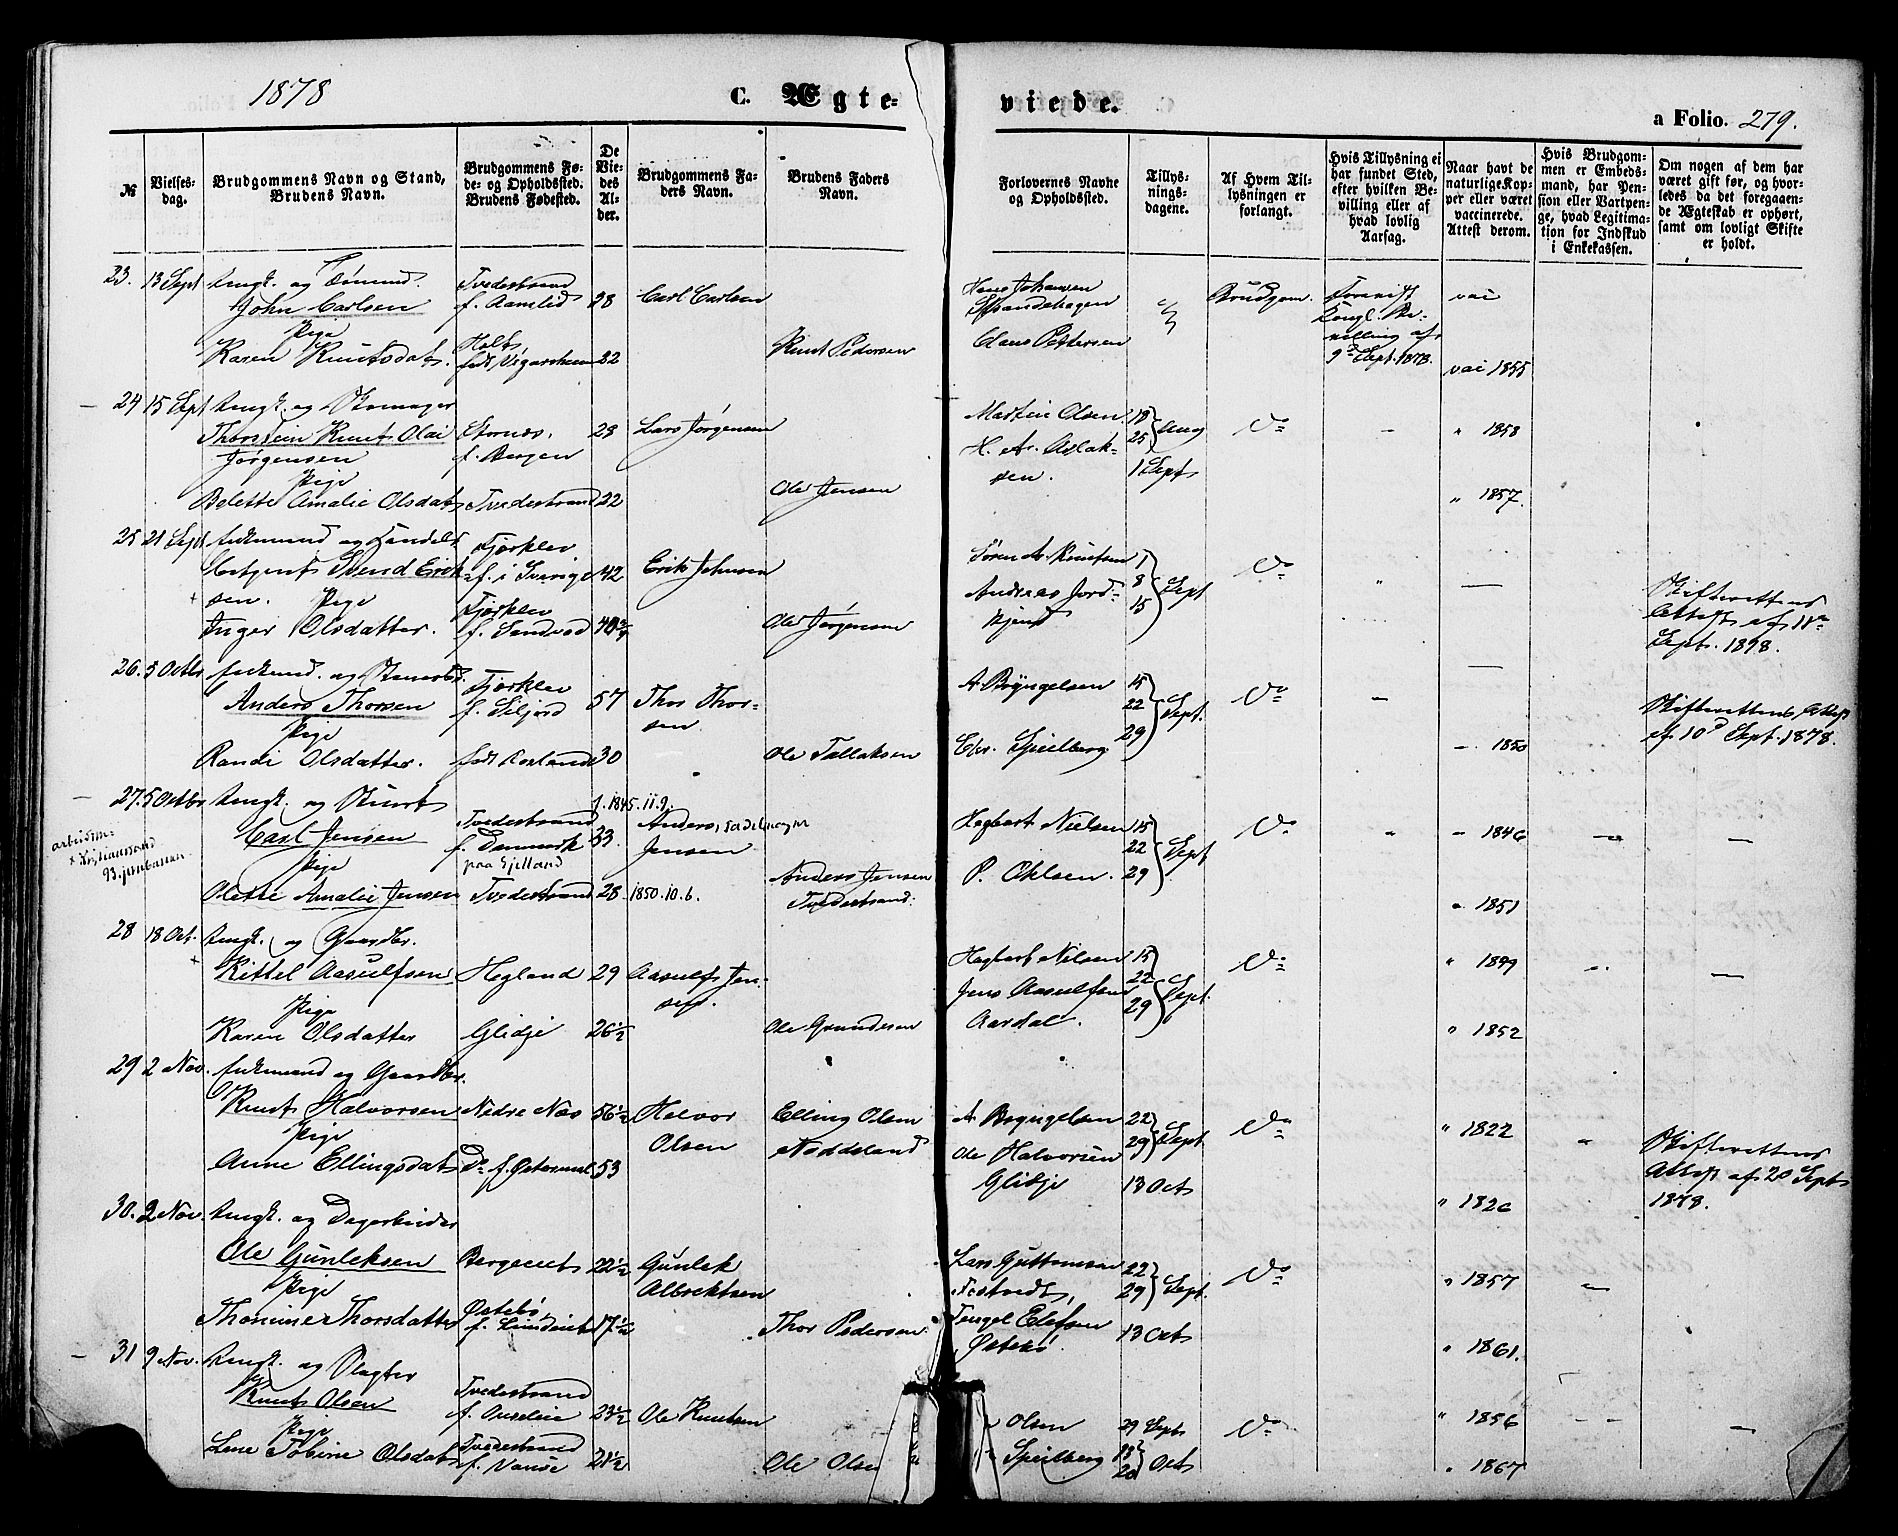 1878
C. Ægte-
viede.
a Folio. 279.
№
Vielses-
dag.
Brudgommens Navn og Stand,
Brudens Navn.
Brudgommens Fø-
de- og Opholdssted.
Brudens Fødested.
De
Vie-
des
Al-
der.
Brudgommens Fa-
ders Navn.
Brudens Faders
Navn.
Forlovernes Navne
og Opholdssted.
Tillys-
nings-
dagene.
Af Hvem Til-
lysningen er
forlangt.
Hvis Tillysning ei
har fundet Sted,
efter hvilken Be-
villing eller af
hvad lovlig
Aarsag.
Naar havt de
naturlige Kop-
per eller været
vaccinerede.
Attest derom.
Hvis Brudgom-
men er Embeds-
mand, har Pen-
sion eller Vartpen-
ge, hvad Legitima-
tion for Indskud
i Enkekassen.
Om nogen af dem har
været gift før, og hvor-
ledes da det foregaaen-
de Ægteskab er ophørt,
samt om lovligt Skifte
er holdt.
23. 13 Sept Ungk. og Tømmd.
John Carlsen
Pige
Karen Knutsdat.
Tvedestrand
f. Aamlid 28
Holt,
født Vegaarsheien 22
Carl Carlsen
Knut Pedersen
Hans Johansen
Strandehagen
Claus Pettersen
Brudgom.
Kongl. Be-
villing af
9d Sept. 1878.
vac
vac 1855
24 15 Sept Ungk. og Skomager
Thorstein Knut Olai
Jørgensen
Pige
Belette Amalie Olsdat
f. Bergen 28
Tvedestrand 22
Lars Jørgensen
Ole Jensen
Martin Olsen
H. A. Aslak-
sen.
18
25 Aug
1 Sept
Do
" 1858
" 1857.
25 21 Sept Enkemand og Handels
betjent Svend Erik-
sen. Pige
Inger Olsdatter.
Fjørklev
f. i Sverige 42
Fjørklev
f. Sandved 40 3/4
Erik Johnsen
Ole Jørgensen
Søren A. Knutsen
Andreas Jord-
kjend
1
8
15 Sept
Do
Skifterettens
Attest af 11te
Sept. 1878.
26. 5 Octbr Enkemd. og
Anders Thorsen
Pige
Randi Olsdatter.
Fjørklev
f. Siljord 57
30
Thor Thor-
sen
Ole Tallaksen
A Bryngelsen
Chr. Speilberg
15
22
29 Sept.
Do
" 1850
Skifterettens Attest
af 10d Sept. 1878.
27. 5 Octbr Ungk. og
Carl Jensen
Pige
Olette Amalie Jensen
arbeidsm:
+ Kristianssand
93. jernbanen
Tvedestrand
f. Danmark 33.
paa Gjelland
Tvedestrand 28
f. 1845. 11. 9.
Anders, sadelmager
Jensen
1850. 10. 6.
Anders Jensen
Tvedestrand.
Hegbert Nielsen
P. Ohlsen.
15
22
29 Sept
Do
" 1846
" 1851
28 18 Oct. Ungk. og Gaardbr.
Kittel Aasulfsen
Pige
Karen Olsdatter
Hegland 29
Glidje 26 1/2
Aasulf Jen-
sen.
Ole Gundersen
Hegbert Nilsen
Jens Aasulfsen
Aardal.
15
22
29 Sept.
Do
" 1849
" 1852
29 2 Nov. Enkemand og Gaardbr.
Knut Halvorsen
Pige
Anne Ellingsdat
Nedre Næs 56 1/2
Do 53
Halvor
Olsen
Elling Olsen
Noddeland
A Bryngelsen
Ole Halvorsen
Glidje
22
29 Sept.
13 Oct
Do
" 1822
" 1826
Skifterettens
Attest af 20 Sept
1878.
30. 2 Nov. Ungk. og Dagarbeider
Ole Gunleksen
Pige
Thomine Thorsdatter
22 1/2
Østebø,
17 1/2
Gunlek
Albrektsen
Thor Pedersen
Lars Guttormsen
Tostvedt,
Tengel Elefsen
Østebø
22
29 Sept.
13 Oct
Do
" 1857
" 1861.
31 9 Nov. Ungk. og Slagter
Knut Olsen
Pige
Lene Tobine Olsdat
Tvedestrand
23 1/2
Tvedestrand
f. Vanse 21 1/2
Ole Knutsen
Ole Olsen
Olsen
Speilberg
29 Sept
13
20 Oct
Do
" 1856
" 1867